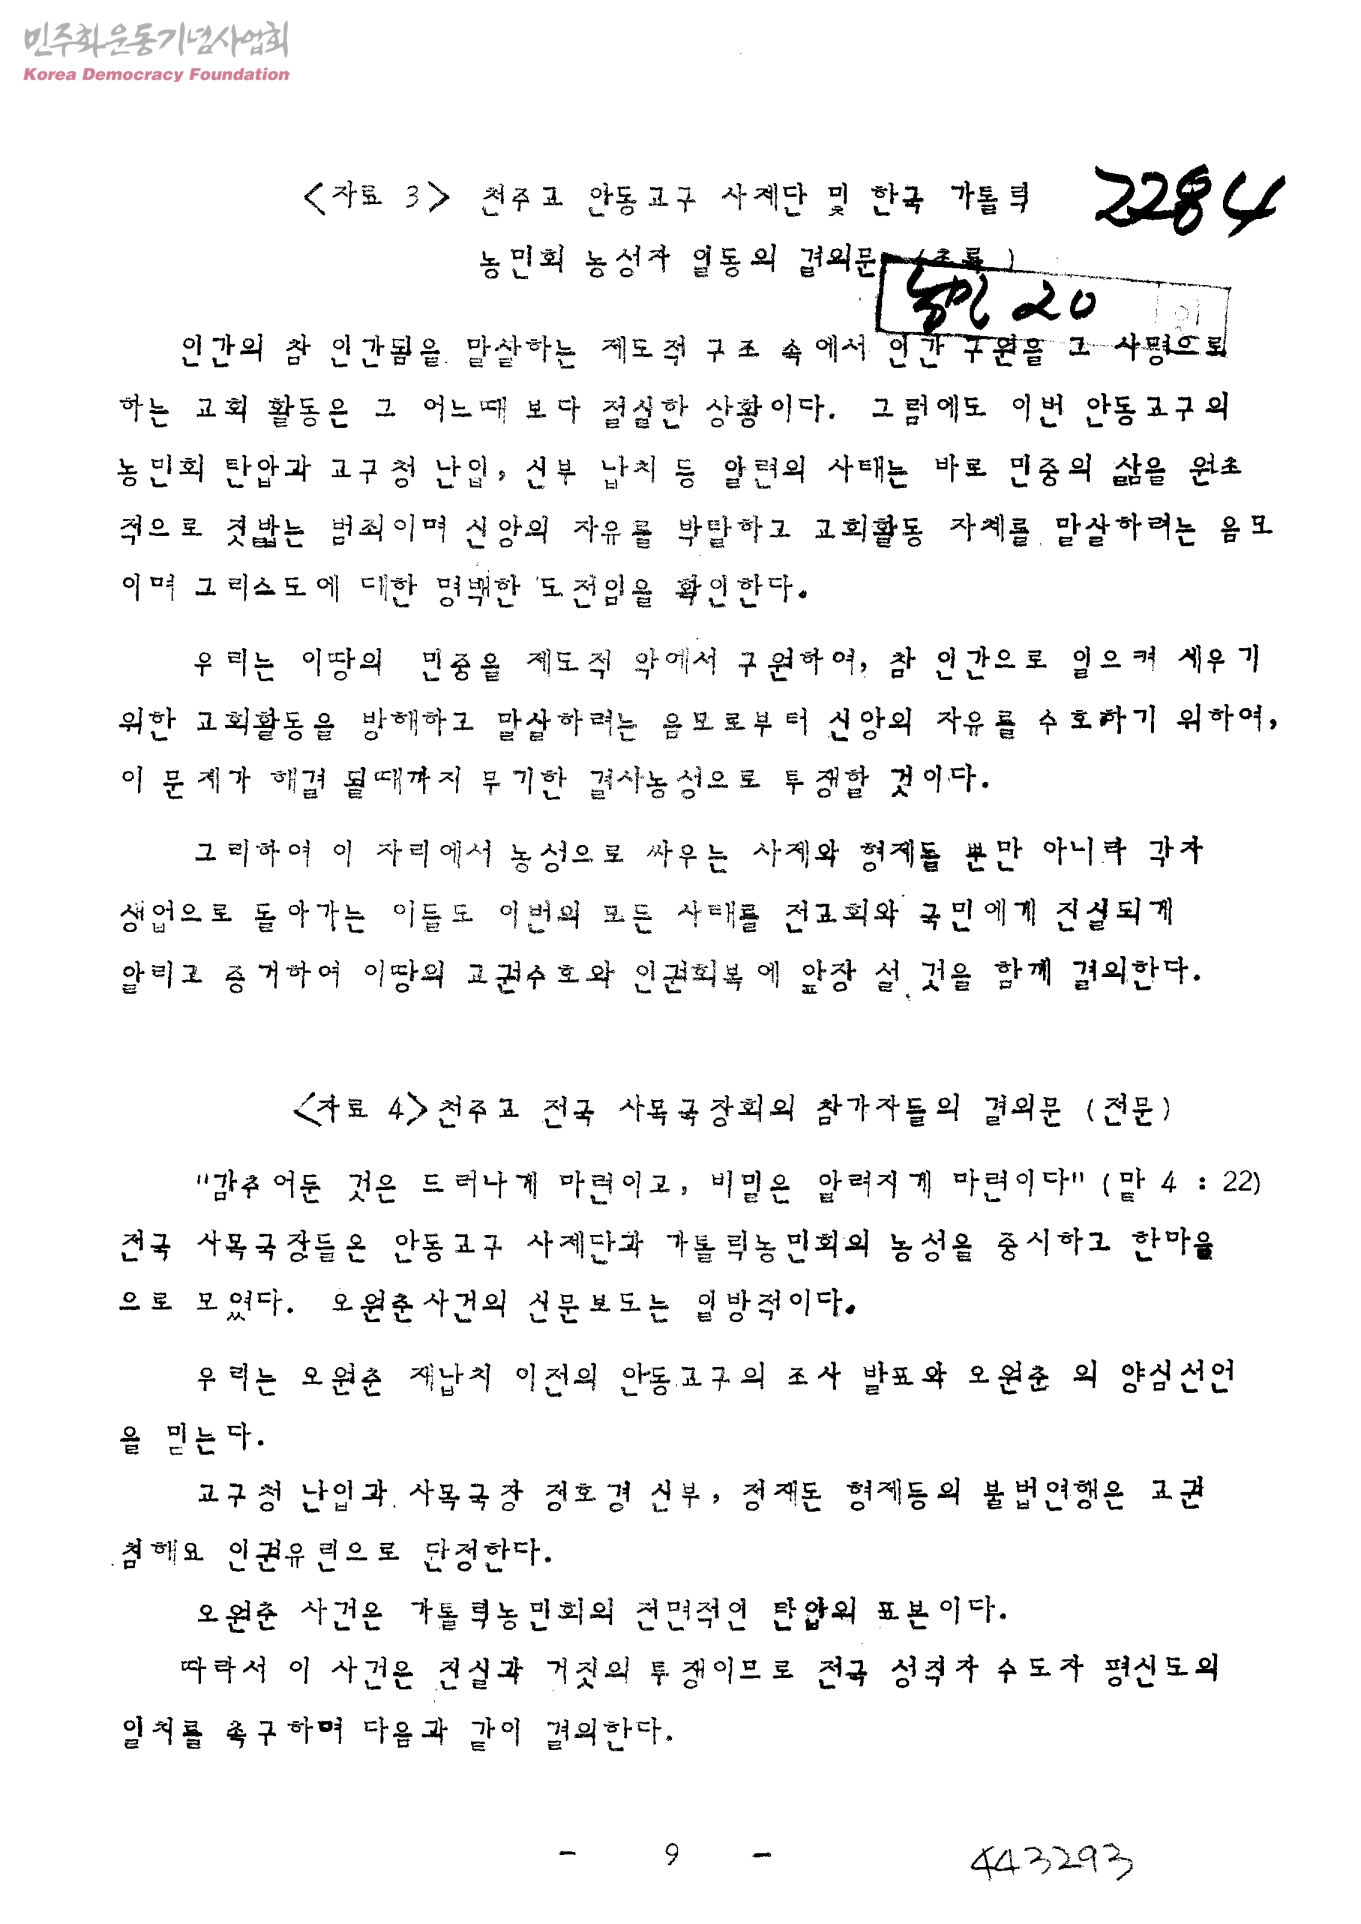 민주화운동기념사업회
Korea Democracy Foundation
<자료 3> 천주교 안동교구 사제단 및 한국 가톨릭
2284
농민회 농성자 일동의 결의문 (초록)
농민 20
인간의 참 인간됨을 말살하는 제도적 구조 속에서 인간 구원을 그 사명으로
하는 교회 활동은 그 어느때 보다 절실한 상황이다. 그럼에도 이번 안동교구의
농민회 탄압과 교구청 난입, 신부 납치 등 일련의 사태는 바로 민중의 삶을 원초
적으로 짓밟는 범죄이며 신앙의 자유를 박탈하고 교회활동 자체를 말살하려는 음모
이며 그리스도에 대한 명백한 도전임을 확인한다.
우리는 이땅의 민중을 제도적 악에서 구원하여, 참 인간으로 일으켜 세우기
위한 교회활동을 방해하고 말살하려는 음모로부터 신앙의 자유를 수호하기 위하여,
이 문제가 해결 될때까지 무기한 결사농성으로 투쟁할 것이다.
그리하여 이 자리에서 농성으로 싸우는 사제와 형제들 뿐만 아니라 각자
생업으로 돌아가는 이들도 이번의 모든 사태를 전교회와 국민에게 진실되게
알리고 증거하여 이땅의 교권수호와 인권회복에 앞장 설 것을 함께 결의한다.
<자료 4> 천주교 전국 사목국장회의 참가자들의 결의문 (전문)
"감추어둔 것은 드러나게 마련이고, 비밀은 알려지게 마련이다" (맡 4 : 22)
전국 사목국장들은 안동교구 사제단과 가톨릭농민회의 농성을 중시하고 한마을
으로 모였다. 오원춘사건의 신문보도는 일방적이다.
우리는 오원춘 재납치 이전의 안동교구의 조사 발표와 오원춘 의 양심선언
을 믿는다.
교구청 난입과 사목국장 정호경 신부, 정재돈 형제등의 불법연행은 교권
침해요 인권유린으로 단정한다.
오원춘 사건은 가톨릭농민회의 전면적인 탄압의 표본이다.
따라서 이 사건은 진실과 거짓의 투쟁이므로 전국 성직자 수도자 평신도의
일치를 촉구하며 다음과 같이 결의한다.
- 9 -
443293